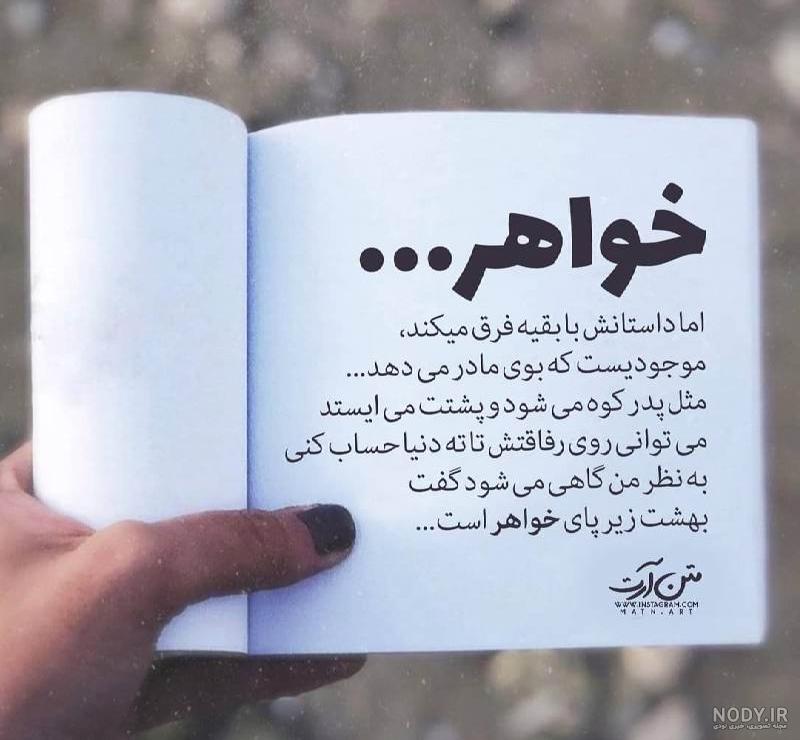 خواهر...
اما داستانش با بقیه فرق میکند،
موجودیست که بوی مادر می دهد...
مثل پدر کوه می شود و پشتت می ایستد
می توانی روی رفاقتش تا ته دنیا حساب کنی
به نظر من گاهی می شود گفت
بهشت زیر پای خواهر است...
متن آرت
WWW.INSTAGRAM.COM
MATN.ART
NODY.IR
مجله تصویری، خبری نودی